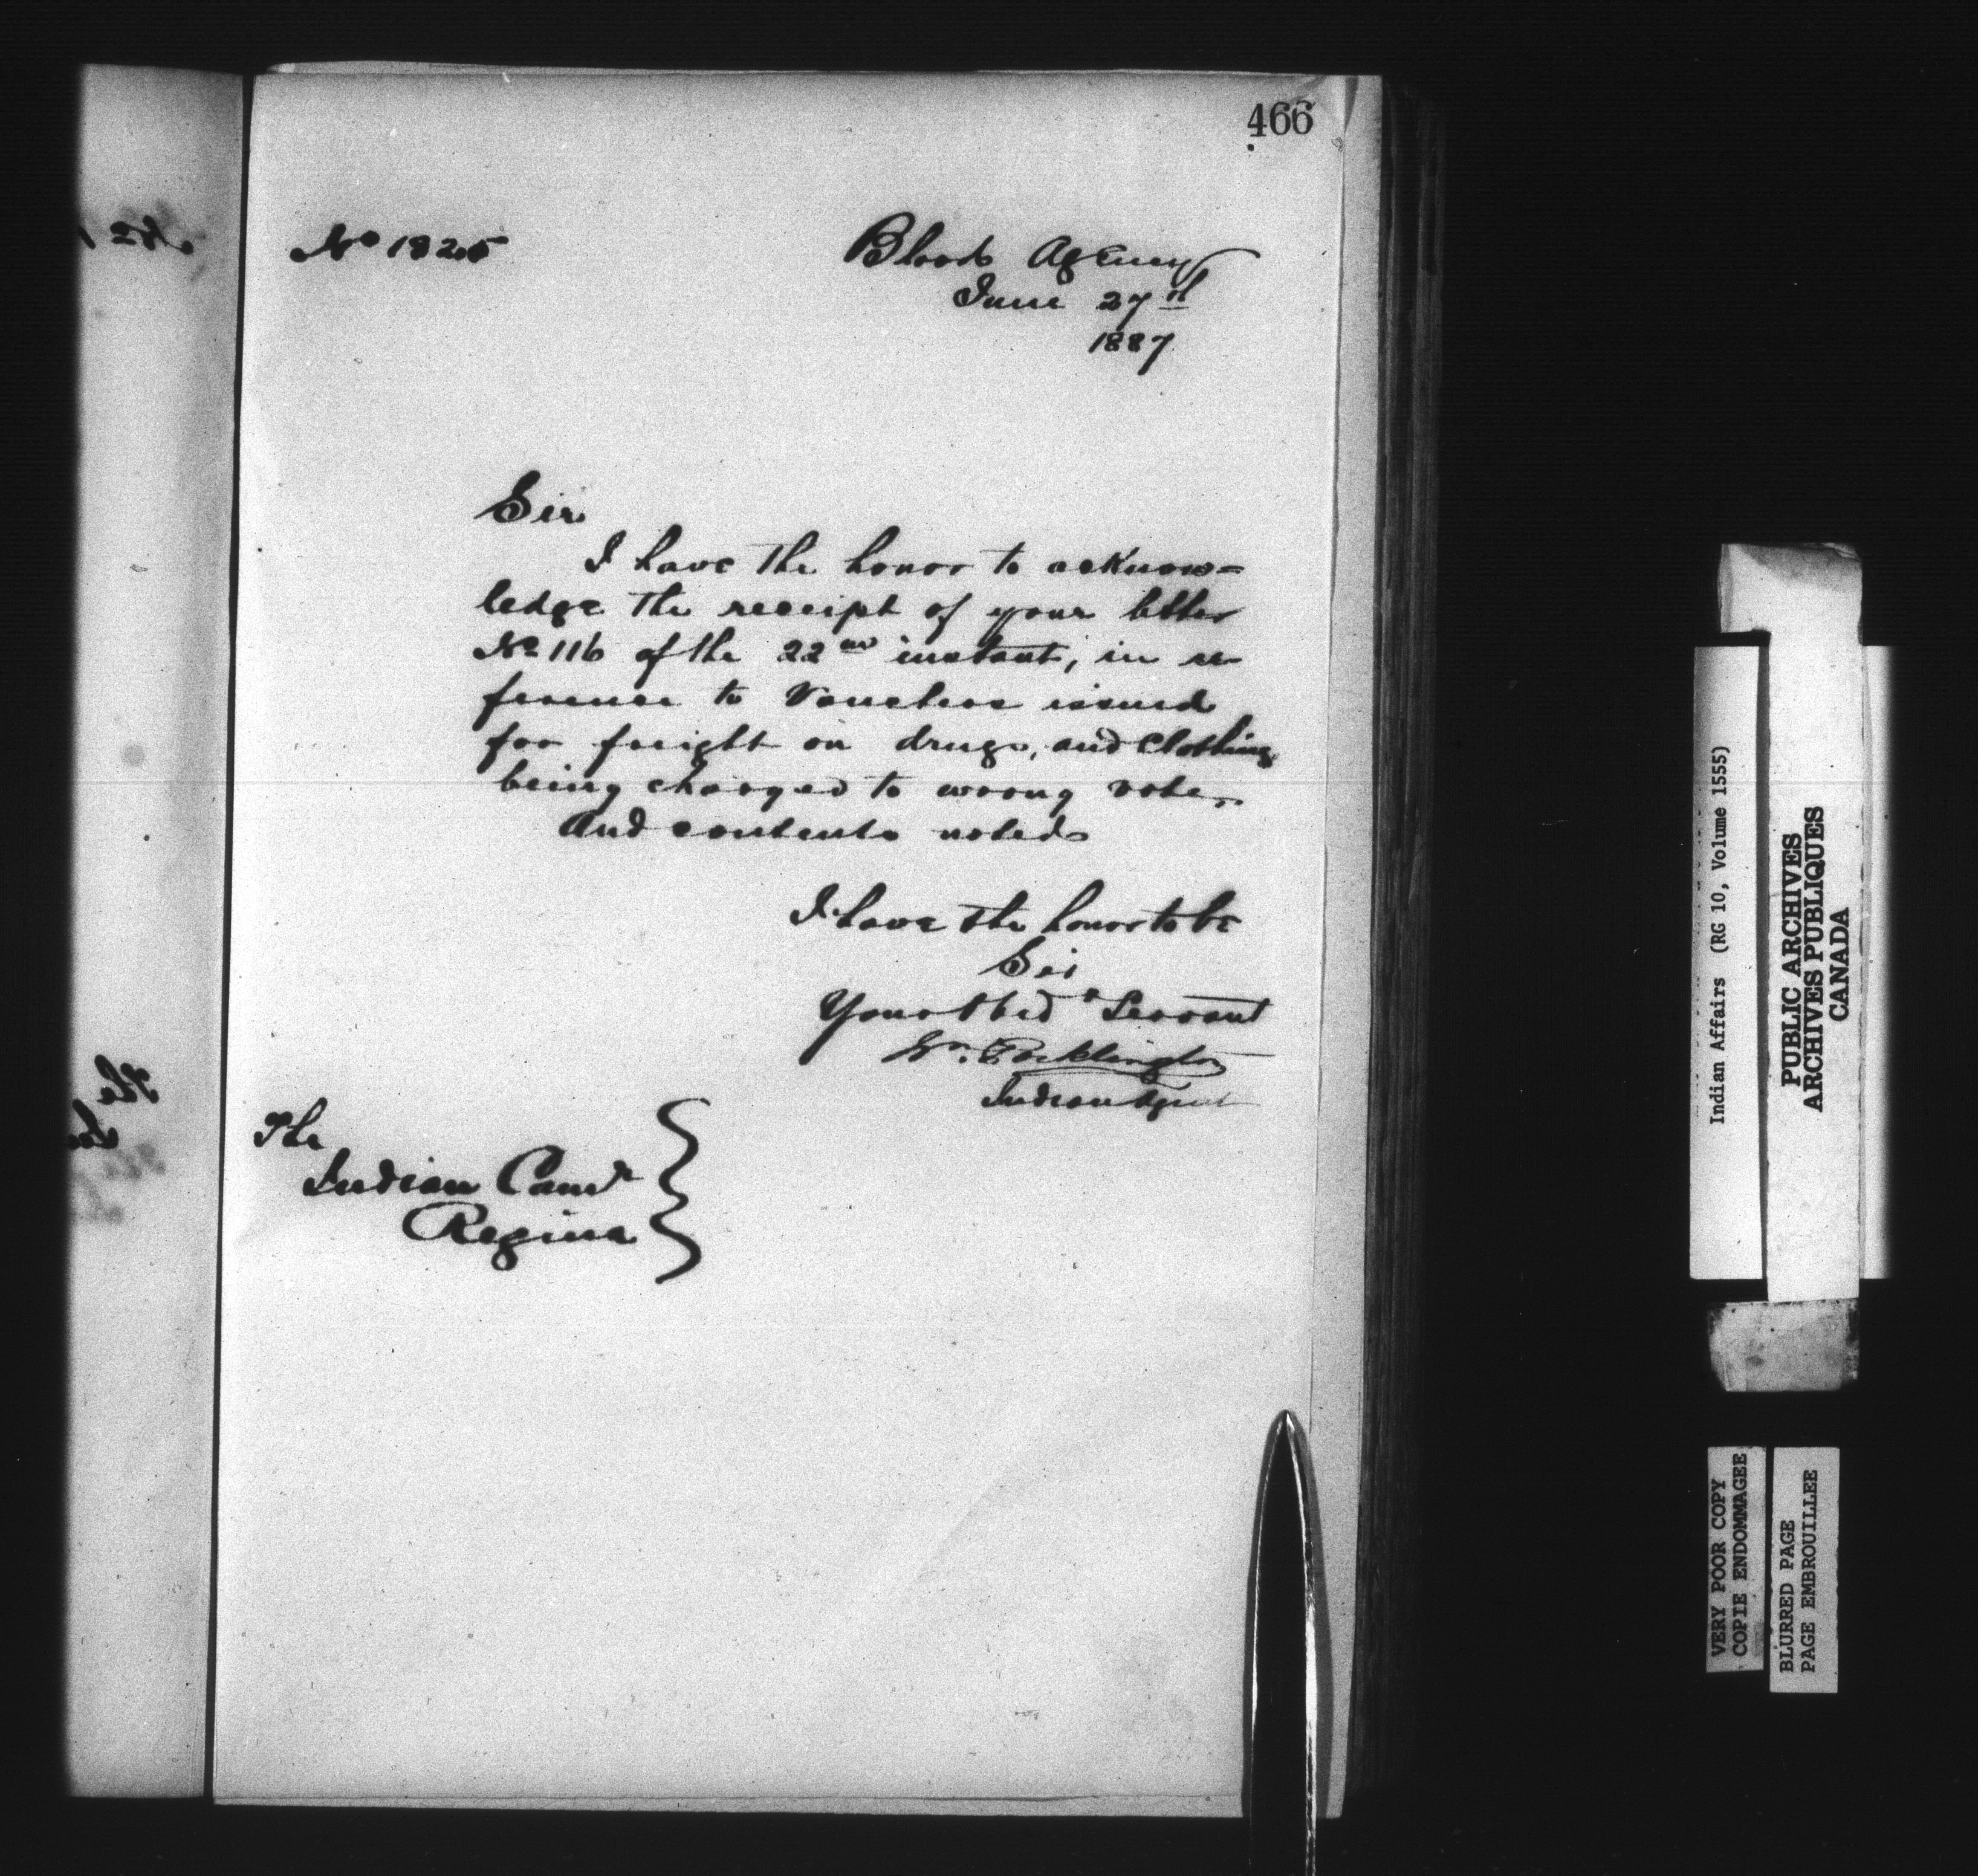 466
No 1825
Blood Agency
June 27th
1887
Sir
I have the honor to acknow=
ledge the receipt of your letter
No 116 of the 22nd instant, in re-
ference to Vouchers issued
for freight on drugs, and Clothing
being charged to wrong vote,
and contents noted
I have the honor to be
Sir
Your Obed t Servant
Wm. Pocklington
Indian Agent
The
Indian Comr
Regina
Indian Affairs (RG 10, Volume 1555)
PUBLIC ARCHIVES
ARCHIVES PUBLIQUES
CANADA
VERY POOR COPY
COPIE ENDOMMAGEE
BLURRED PAGE
PAGE EMBROUILLEE